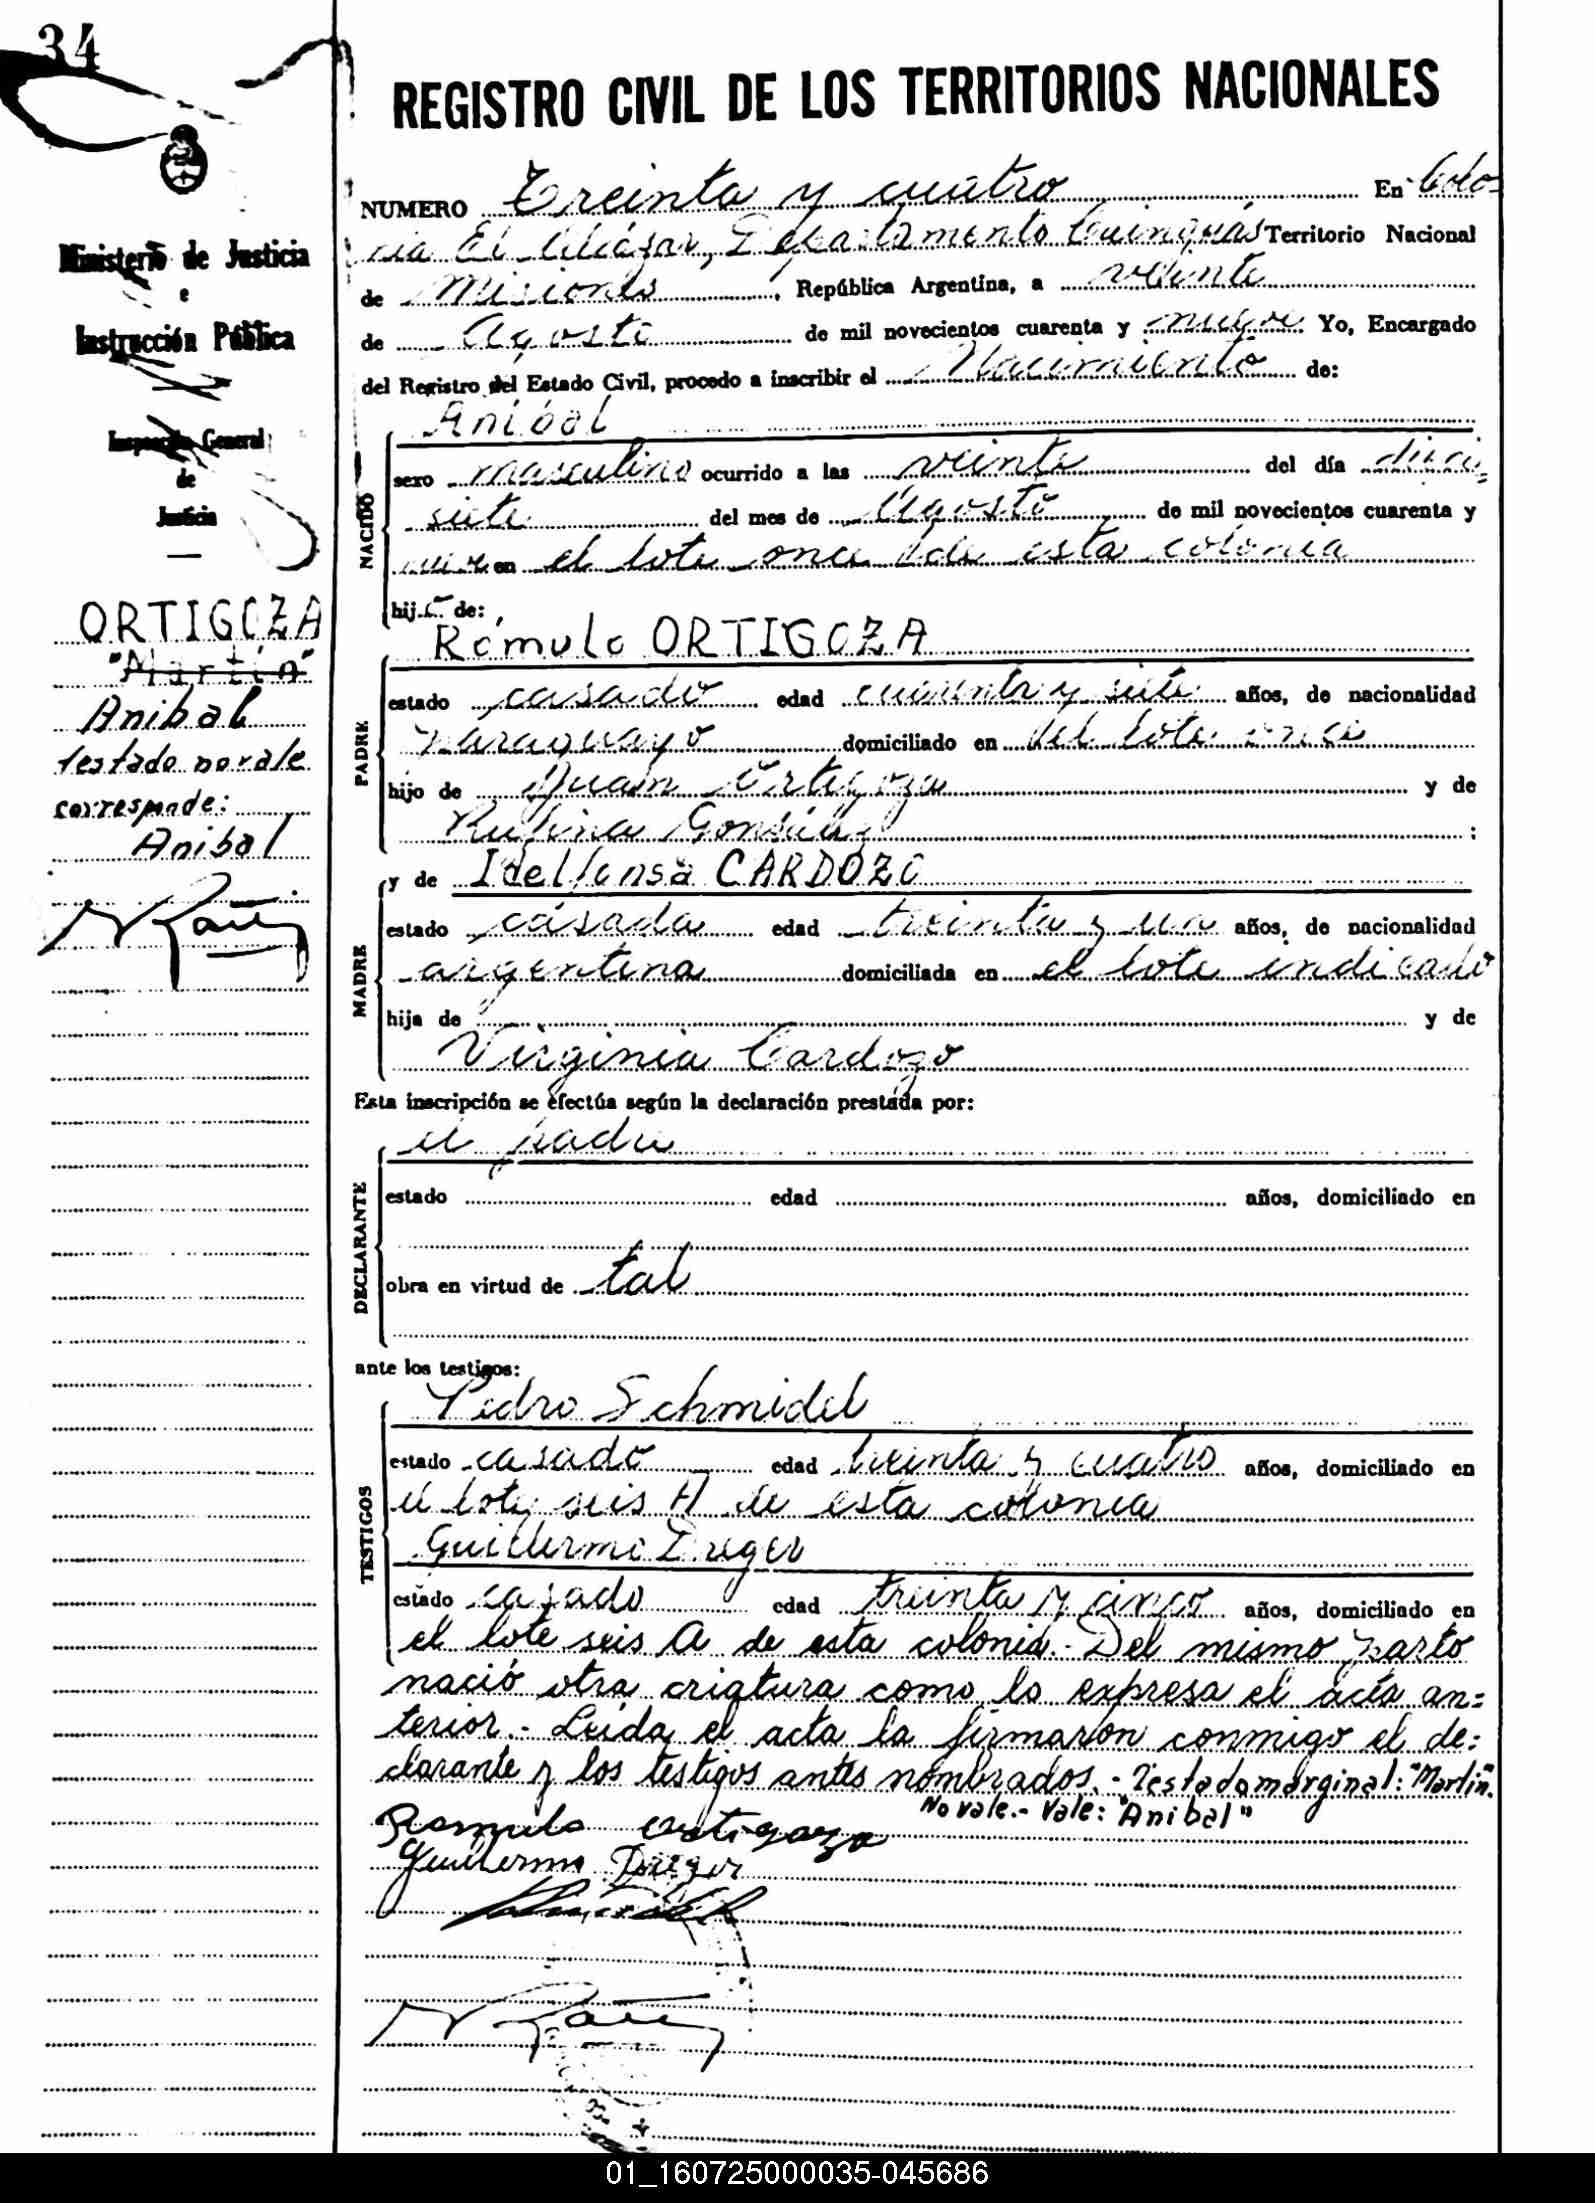 34
REGISTRO CIVIL DE LOS TERRITORIOS NACIONALES
Ministerio de Justicia
e
Instrucción Pública
Inspección General
de
Justicia
ORTIGOZA
"Martín"
Anibal
testado no vale
corresponde:
Anibal
NUMERO Treinta y cuatro En Colo-
nia El Alcázar, Departamento Cainguás Territorio Nacional
de Misiones, República Argentina, a veinte
de Agosto de mil novecientos cuarenta y nueve Yo, Encargado
del Registro del Estado Civil, procedo a inscribir el Nacimiento de:
NACIDO
Anibal
sexo masculino ocurrido a las veinte del día dieci=
siete del mes de Agosto de mil novecientos cuarenta y
nueve en el lote once de esta colonia
hijo de:
PADRE
Rómulo ORTIGOZA
estado casado edad cuarenta y siete años, de nacionalidad
paraguayo domiciliado en del lote once
hijo de Juan Ortigoza y de
Rufina González;
MADRE
y de Idelfonsa CARDOZO
estado casada edad treinta y un años, de nacionalidad
argentina domiciliada en el lote indicado
hija de y de
Virginia Cardozo
Esta inscripción se efectúa según la declaración prestada por:
DECLARANTE
el padre
estado edad años, domiciliado en
obra en virtud de tal
ante los testigos:
TESTIGOS
Pedro Schmidel
estado casado edad treinta y cuatro años, domiciliado en
el lote seis A de esta colonia
Guillermo Dreger
estado casado edad treinta y cinco años, domiciliado en
el lote seis A de esta colonia.- Del mismo parto
nació otra criatura como lo expresa el acta an=
terior.- Leída el acta la firmaron conmigo el de=
clarante y los testigos antes nombrados.- Testado marginal: "Martín".
No vale.- Vale: "Anibal"
Romulo ortigoza
Guillermo Dreger
01_160725000035-045686